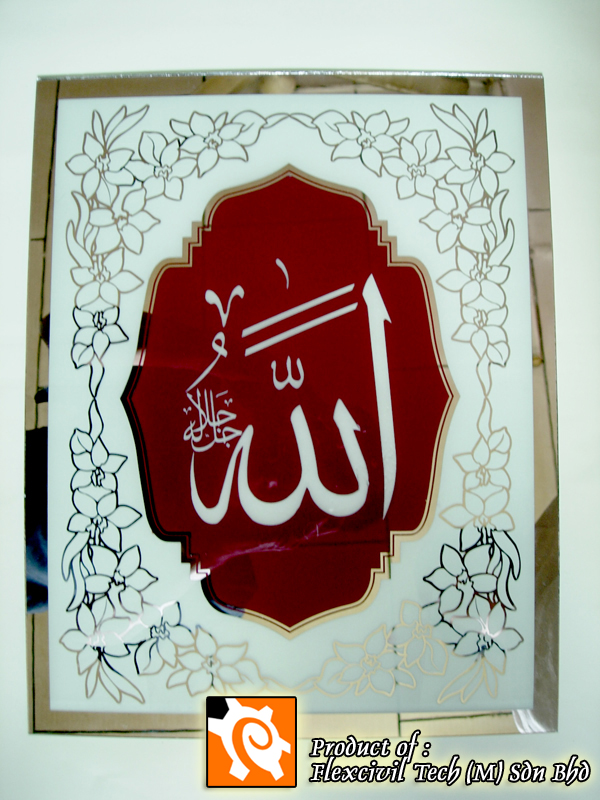 الله
جل جلاله
Product of :
Flexcivil Tech (M) Sdn Bhd